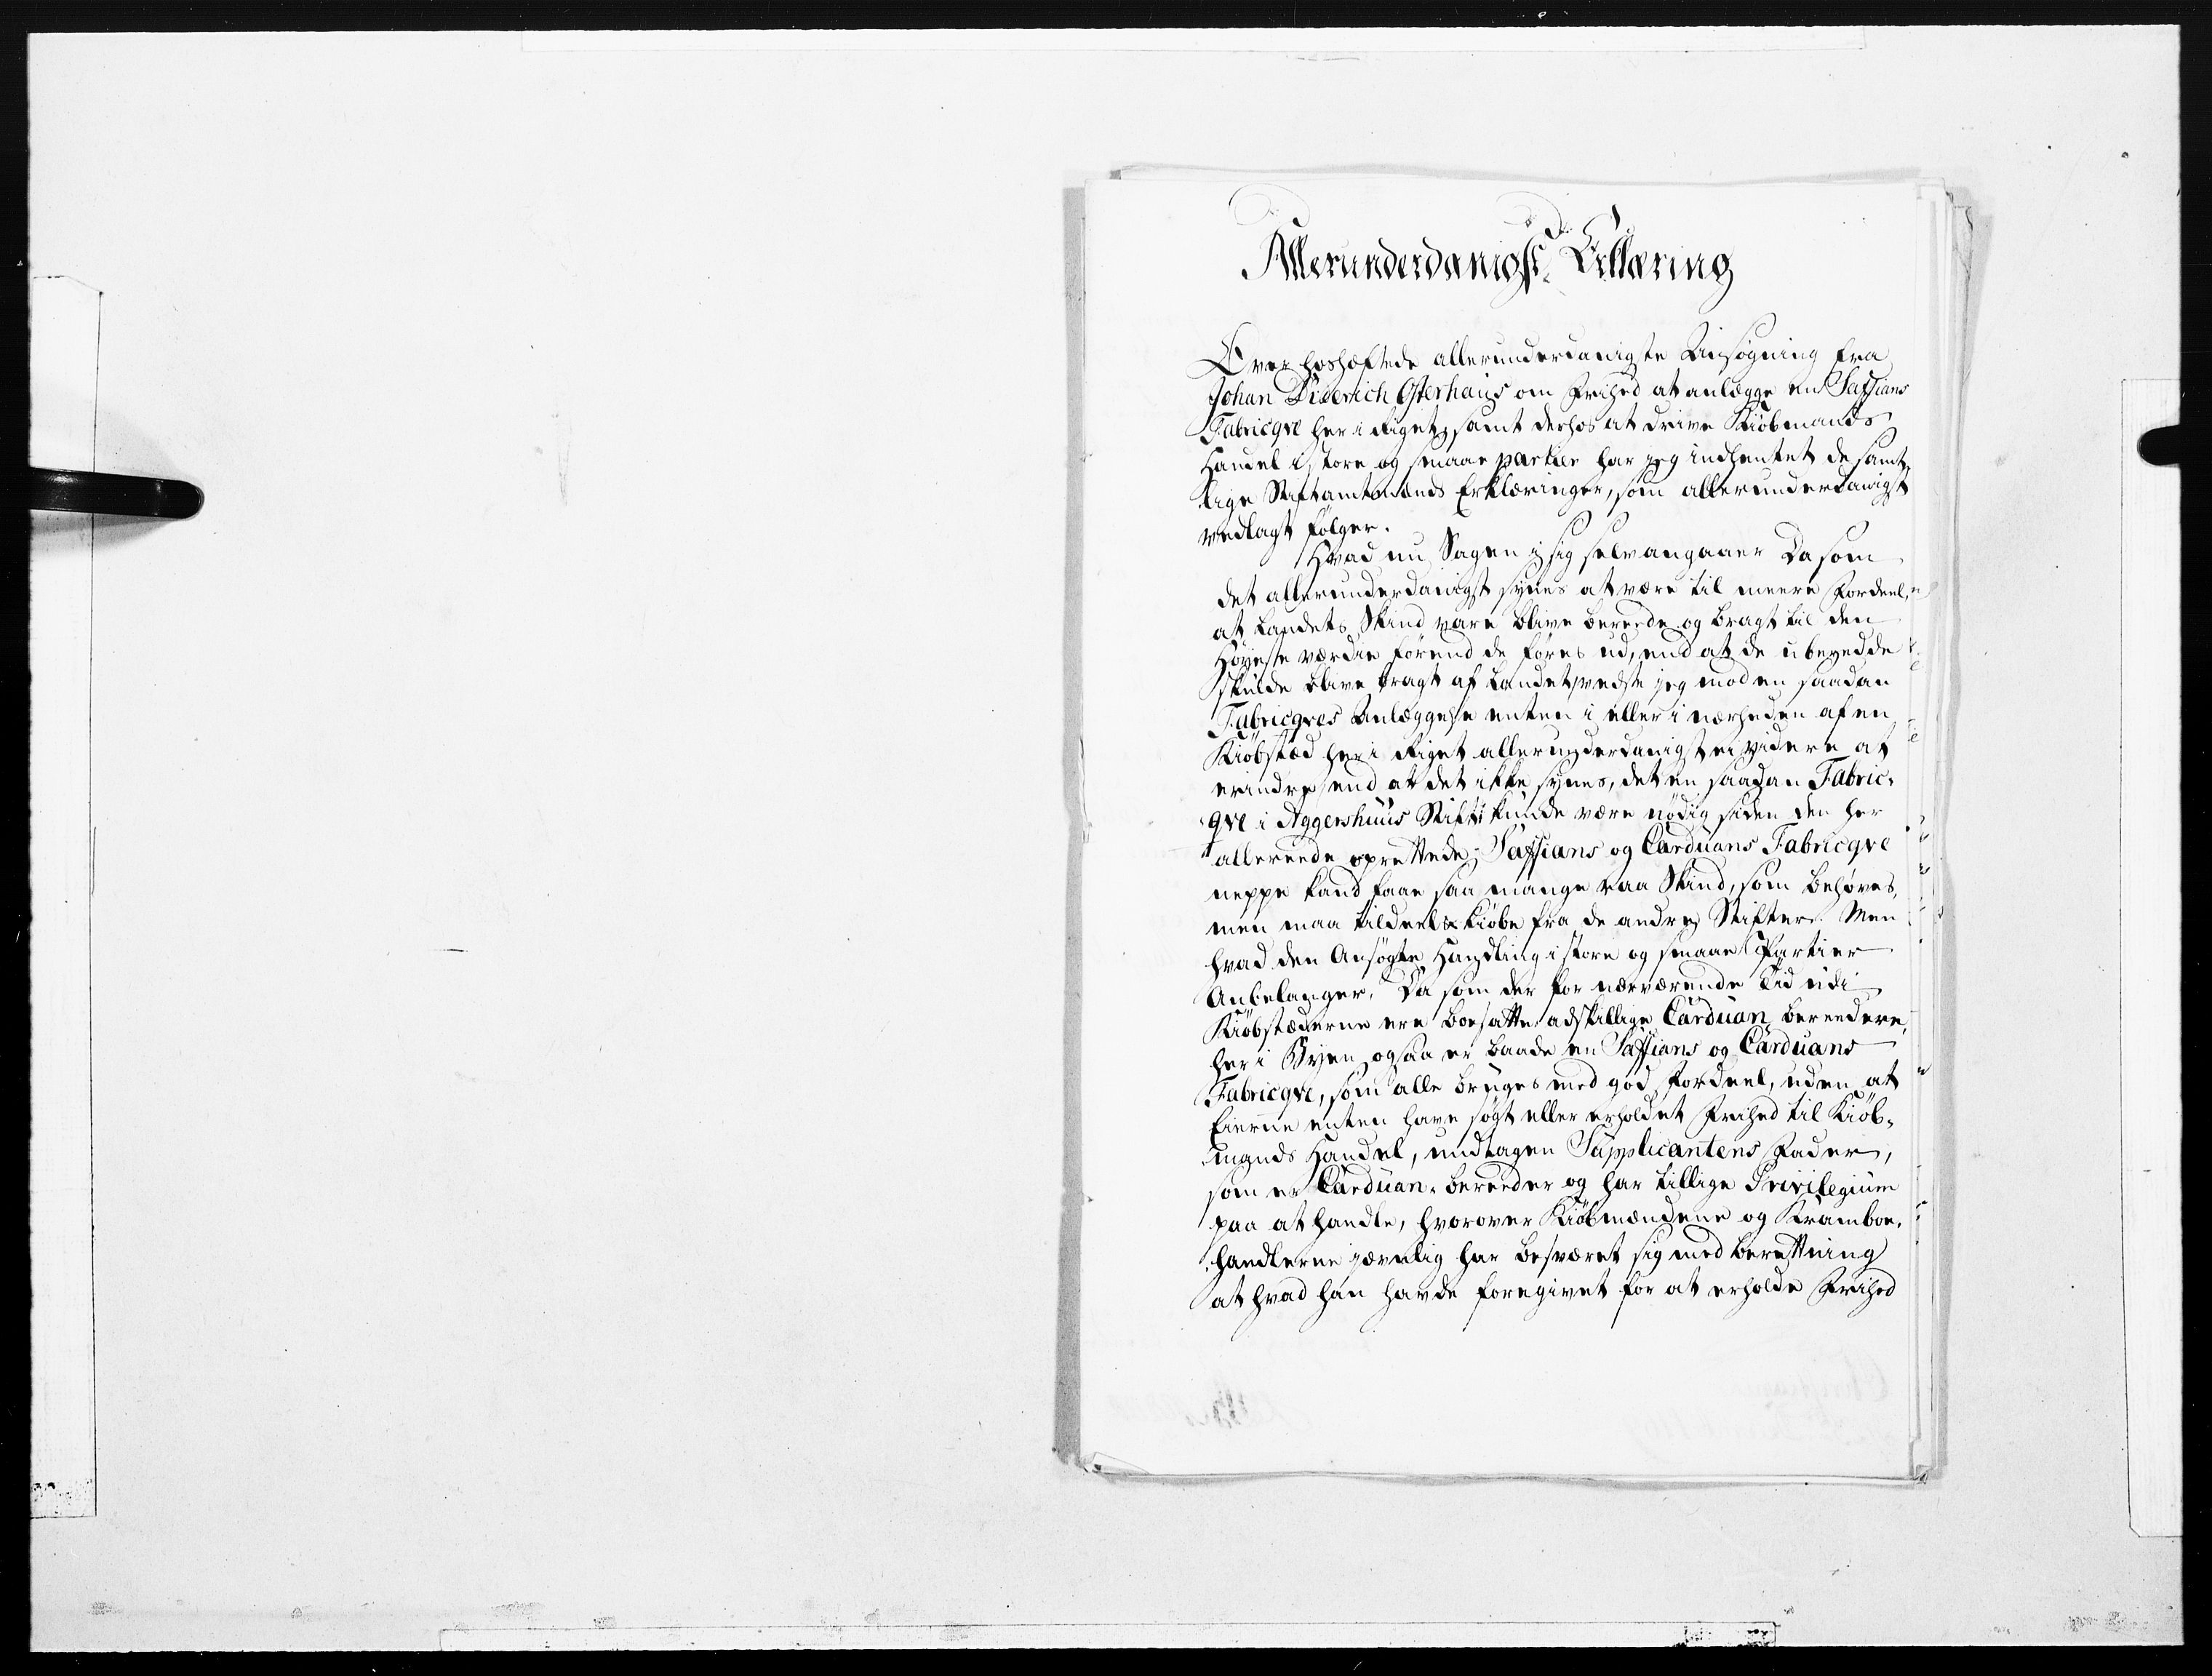 Allerunderdanigst Erklæring
Over hoshæftede allerunderdanigste Ansøgning fra
Johan Diderich Osterhaus om Frihed at anlægge en Saffians
Fabricqve her i Riget, samt derhos at drive Kiöbmands
Handel i store og smaae partier har jeg indhentet de samt,,
lige Stiftamtmænds Erklæringer, som allerunderdanigst
vedlagt fölger.
Hvad nu Sagen i sig selv angaaer Da som
det allerunderdanigst synes at være til meere Fordeel,
at Landets Skind vare blive bereede og bragt til den
Höyeste værdie förend de föres ud, end at de ubereedde
skulde blive bragt af Landet, vedste jeg mod en saadan
Fabricqves Anlæggelse enten i eller i nærheden af en
Kiöbstæd her i Riget allerunderdanigst ei videre at
erindre end at det ikke synes, det en saadan Fabric,,
qve i Aggershuus Stift kunde være nödig siden den her
allereede oprettede Saffians og Carduans Fabricqve
neppe kand faae saa mange raa Skind, som behöves,
men maa tildeels kiöbe fra de andre Stifter. Men
hvad den Ansögte Handling i store og smaae Partier
Anbelanger, Da som der for nærværende Tid udi
Kiöbstæderne ere boesatte adskillige Carduan bereedere,
her i Byen ogsaa er baade en Saffians og Carduans
Fabricqve, som alle bruges med god Fordeel, uden at
Eierne enten have sögt eller erholdet Frihed til Kiöb,,
mands Handel, undtagen Supplicantens Fader,
som er Carduan-bereeder og har tillige Privilegium
paa at handle, hvorover Kiöbmændene og Kramboe,,
handlerne jævnlig har besværet sig med berettning
at hvad han havde foregivet for at erholde Frihed